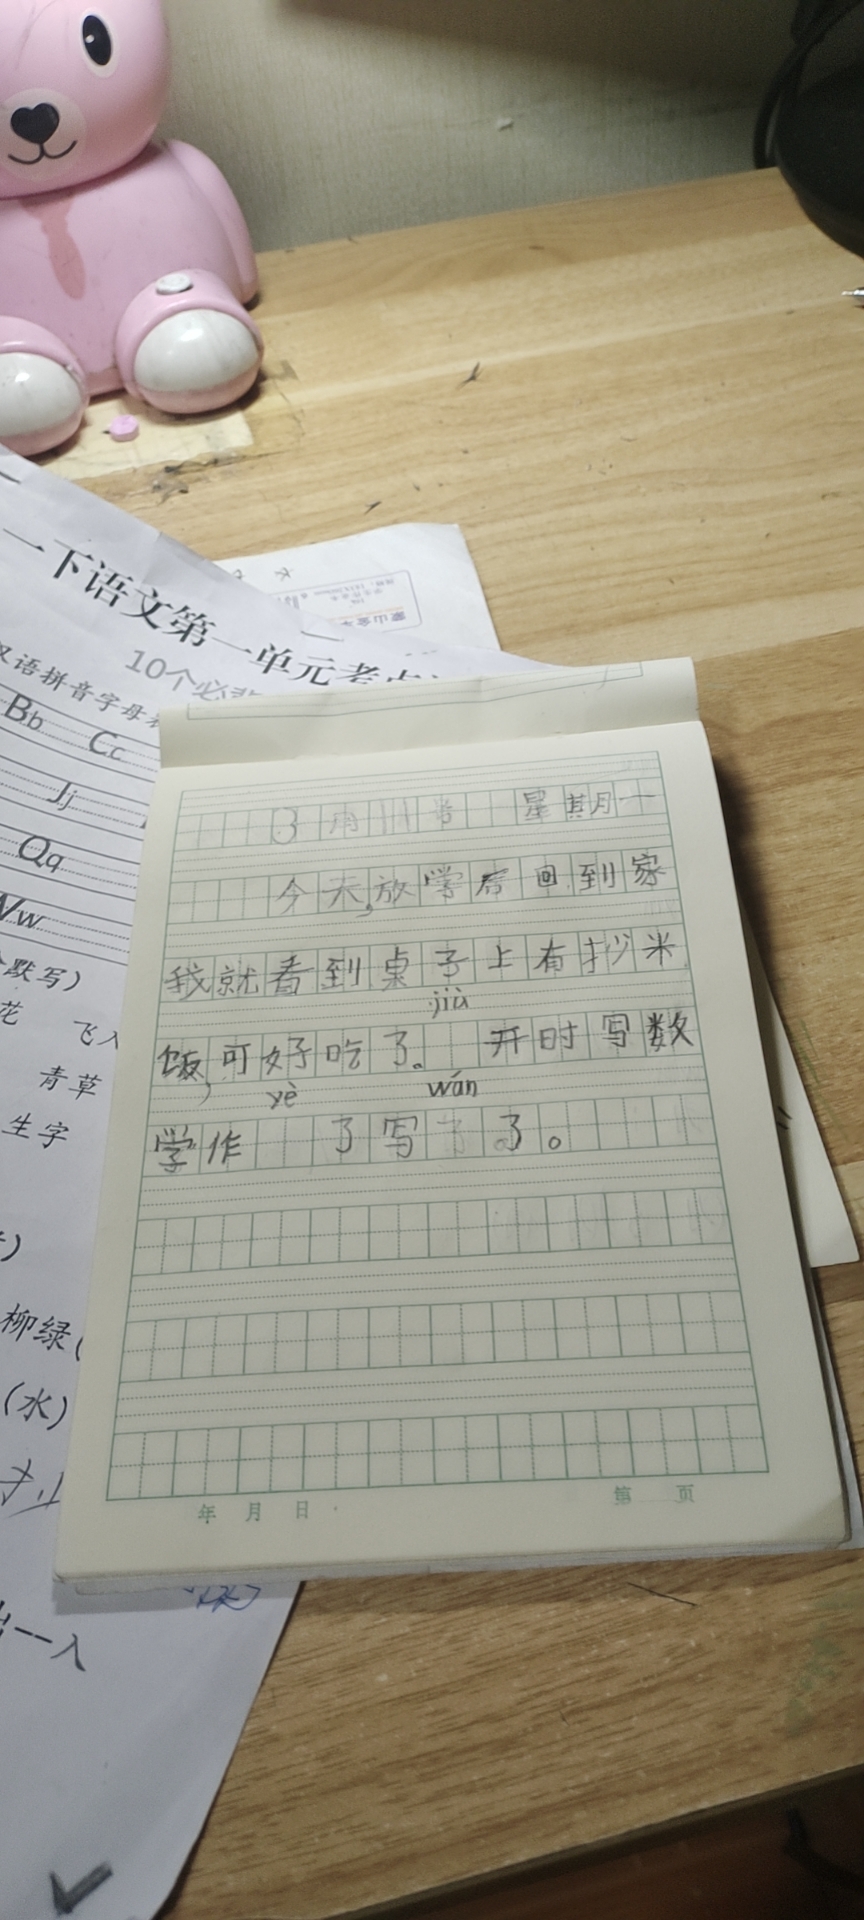 一下语文第一单元考点
10个必背
汉语拼音字母表
Bb Cc
Jj
Qq
Ww
默写)
花 飞入
青草
生字
柳绿(
(水)
一入
3月11 星期一
今天,放学后回到家
我就看到桌子上有抄米
jiù
饭,可好吃了。 开时写数
yè wán
学作 了写 了。
年 月 日
第 页